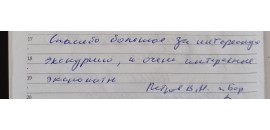 17 Спасибо большое за интересную
18 экскурсию, и очень интересные
19 экспонаты
Петров В.Н.
20